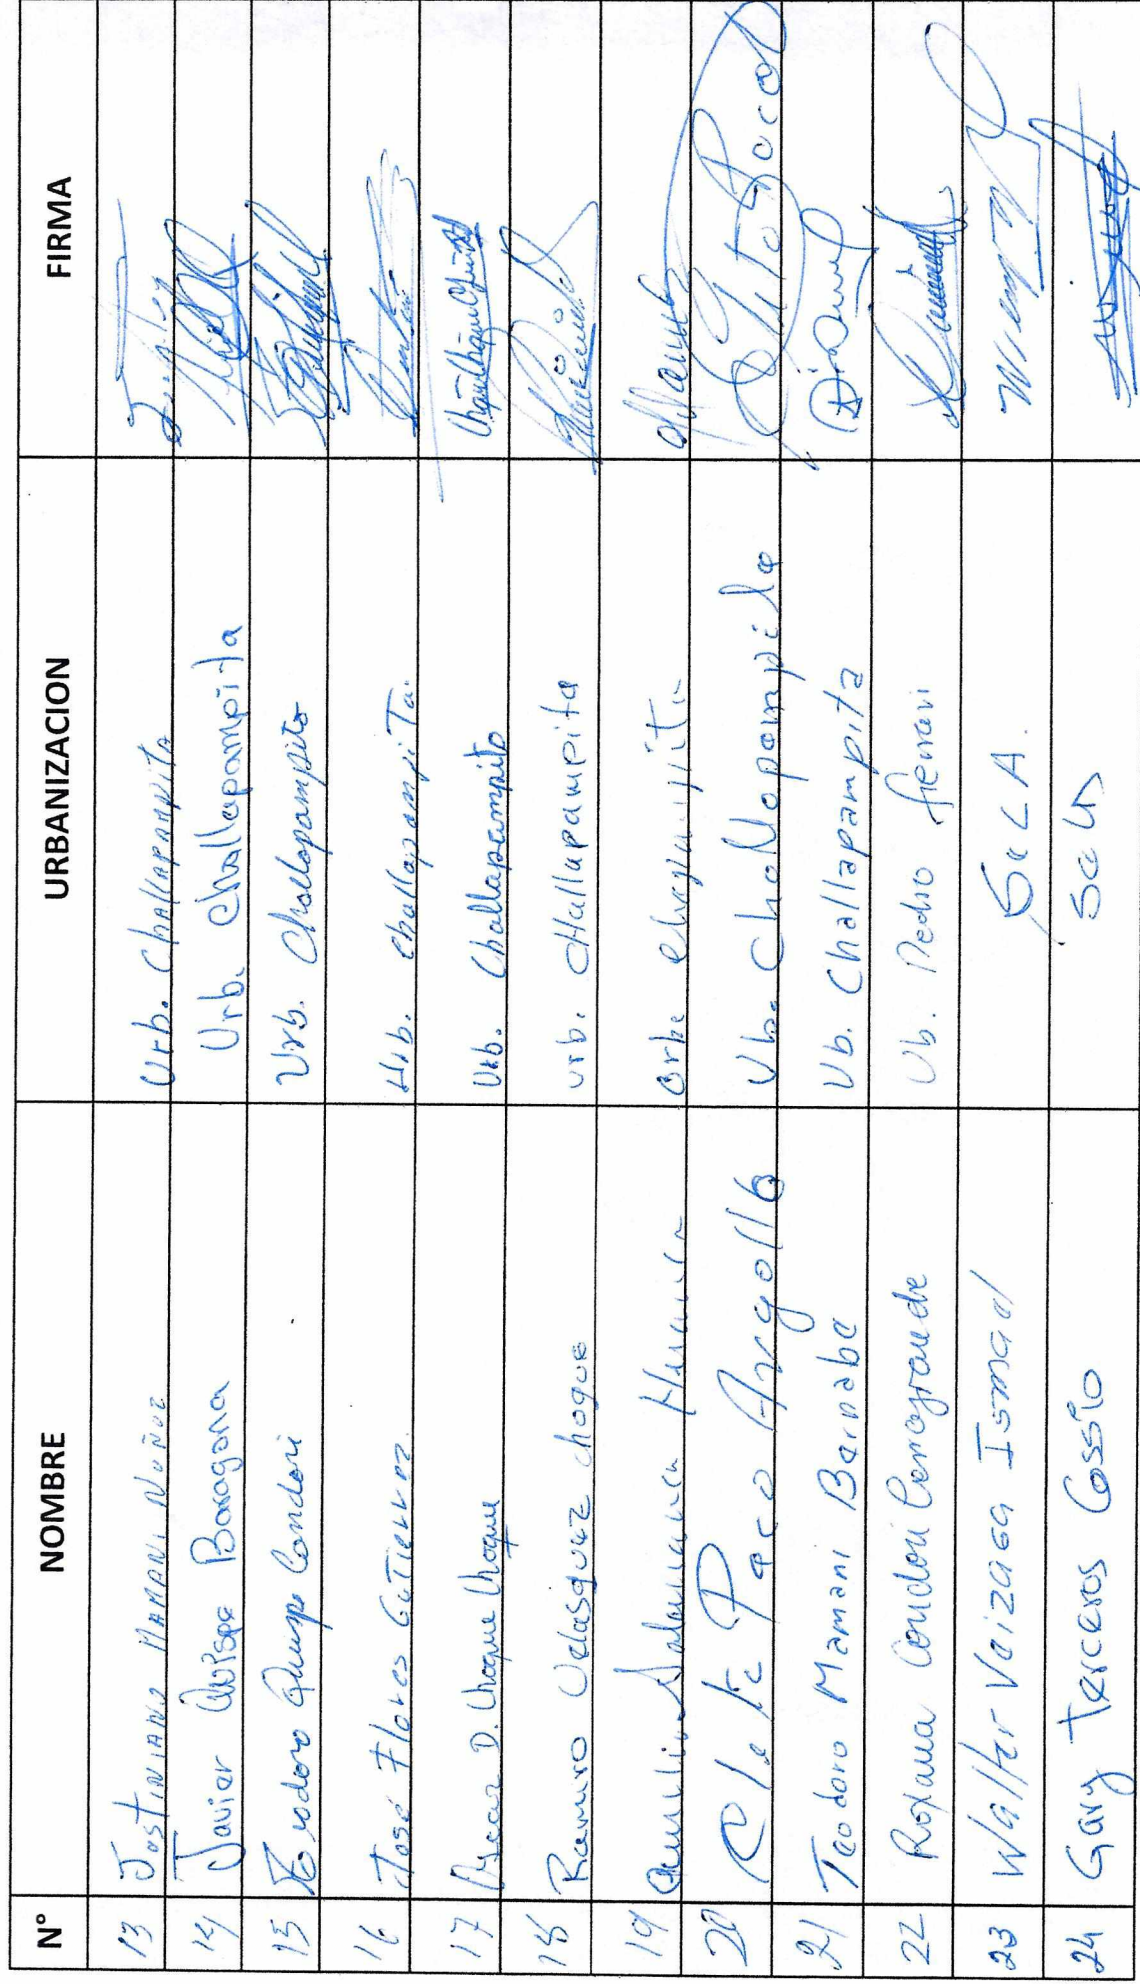 N° NOMBRE URBANIZACION FIRMA
13 Jostiniano Mamani Nuñez Urb. Challapampita
14 Javier Quispe Baragona Urb. Challapampita
15 Teodoro Quispe Condori Urb. Challapampita
16 José Flores Gutierrez Urb. challapampita.
17 Oscar D. Choque Choque Urb. Challapampita
18 Ramiro Velasquez choque urb. cHallapampita
19 Salamanca
20 Paco Argollo Ub. Challapampita
21 Teodoro Mamani Barnabe Ub. Challapampita
22 Roxana Condori Cerrogrande Ub. Pedro ferrari
23 Walter Vaizaga Ismael SeLA.
24 Gary Terceros Cossio